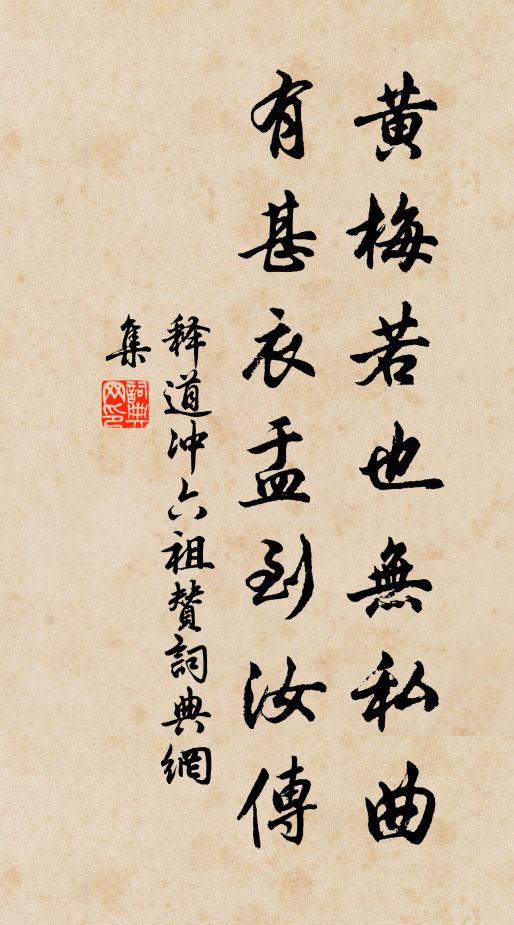 黄梅若也無私曲
有甚衣盂到汝傳
释道冲六祖赞詞典網
集
詞典
网印